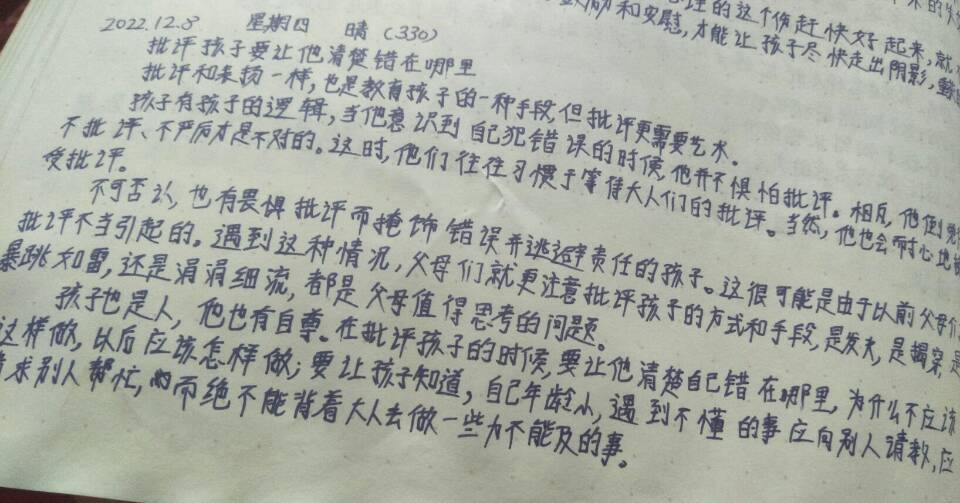 的失
理的这个伤赶快好起来,就
鼓励和安慰,才能让孩子尽快走出阴影,重
2022.12.8 星期四 晴 (330)
批评孩子要让他清楚错在哪里
批评和表扬一样,也是教育孩子的一种手段,但批评更需要艺术。
孩子有孩子的逻辑,当他意识到自己犯错误的时候,他并不惧怕批评。相反,他倒觉
不批评、不严厉才是不对的。这时,他们往往习惯于等待大人们的批评。当然,他也会耐心地接
受批评。
不可否认,也有畏惧批评而掩饰错误并逃避责任的孩子。这很可能是由于以前父母们
批评不当引起的。遇到这种情况,父母们就更注意批评孩子的方式和手段,是发火,是揭穿,是
暴跳如雷,还是涓涓细流,都是父母值得思考的问题。
孩子也是人,他也有自尊。在批评孩子的时候,要让他清楚自己错在哪里,为什么不应该
这样做,以后应该怎样做;要让孩子知道,自己年龄小,遇到不懂的事应向别人请教,应
请求别人帮忙,而绝不能背着大人去做一些力不能及的事。